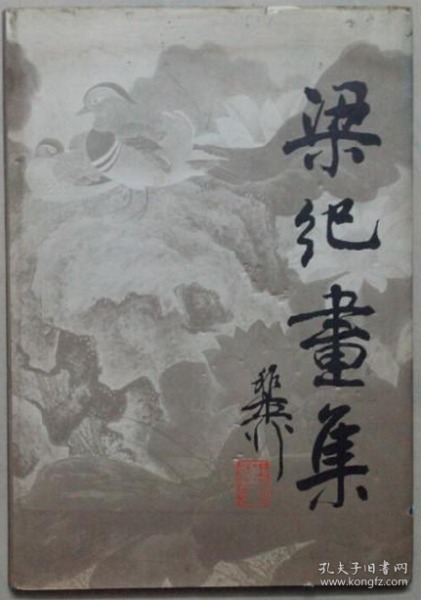 梁纪畫集
孔夫子旧书网
www.kongfz.com